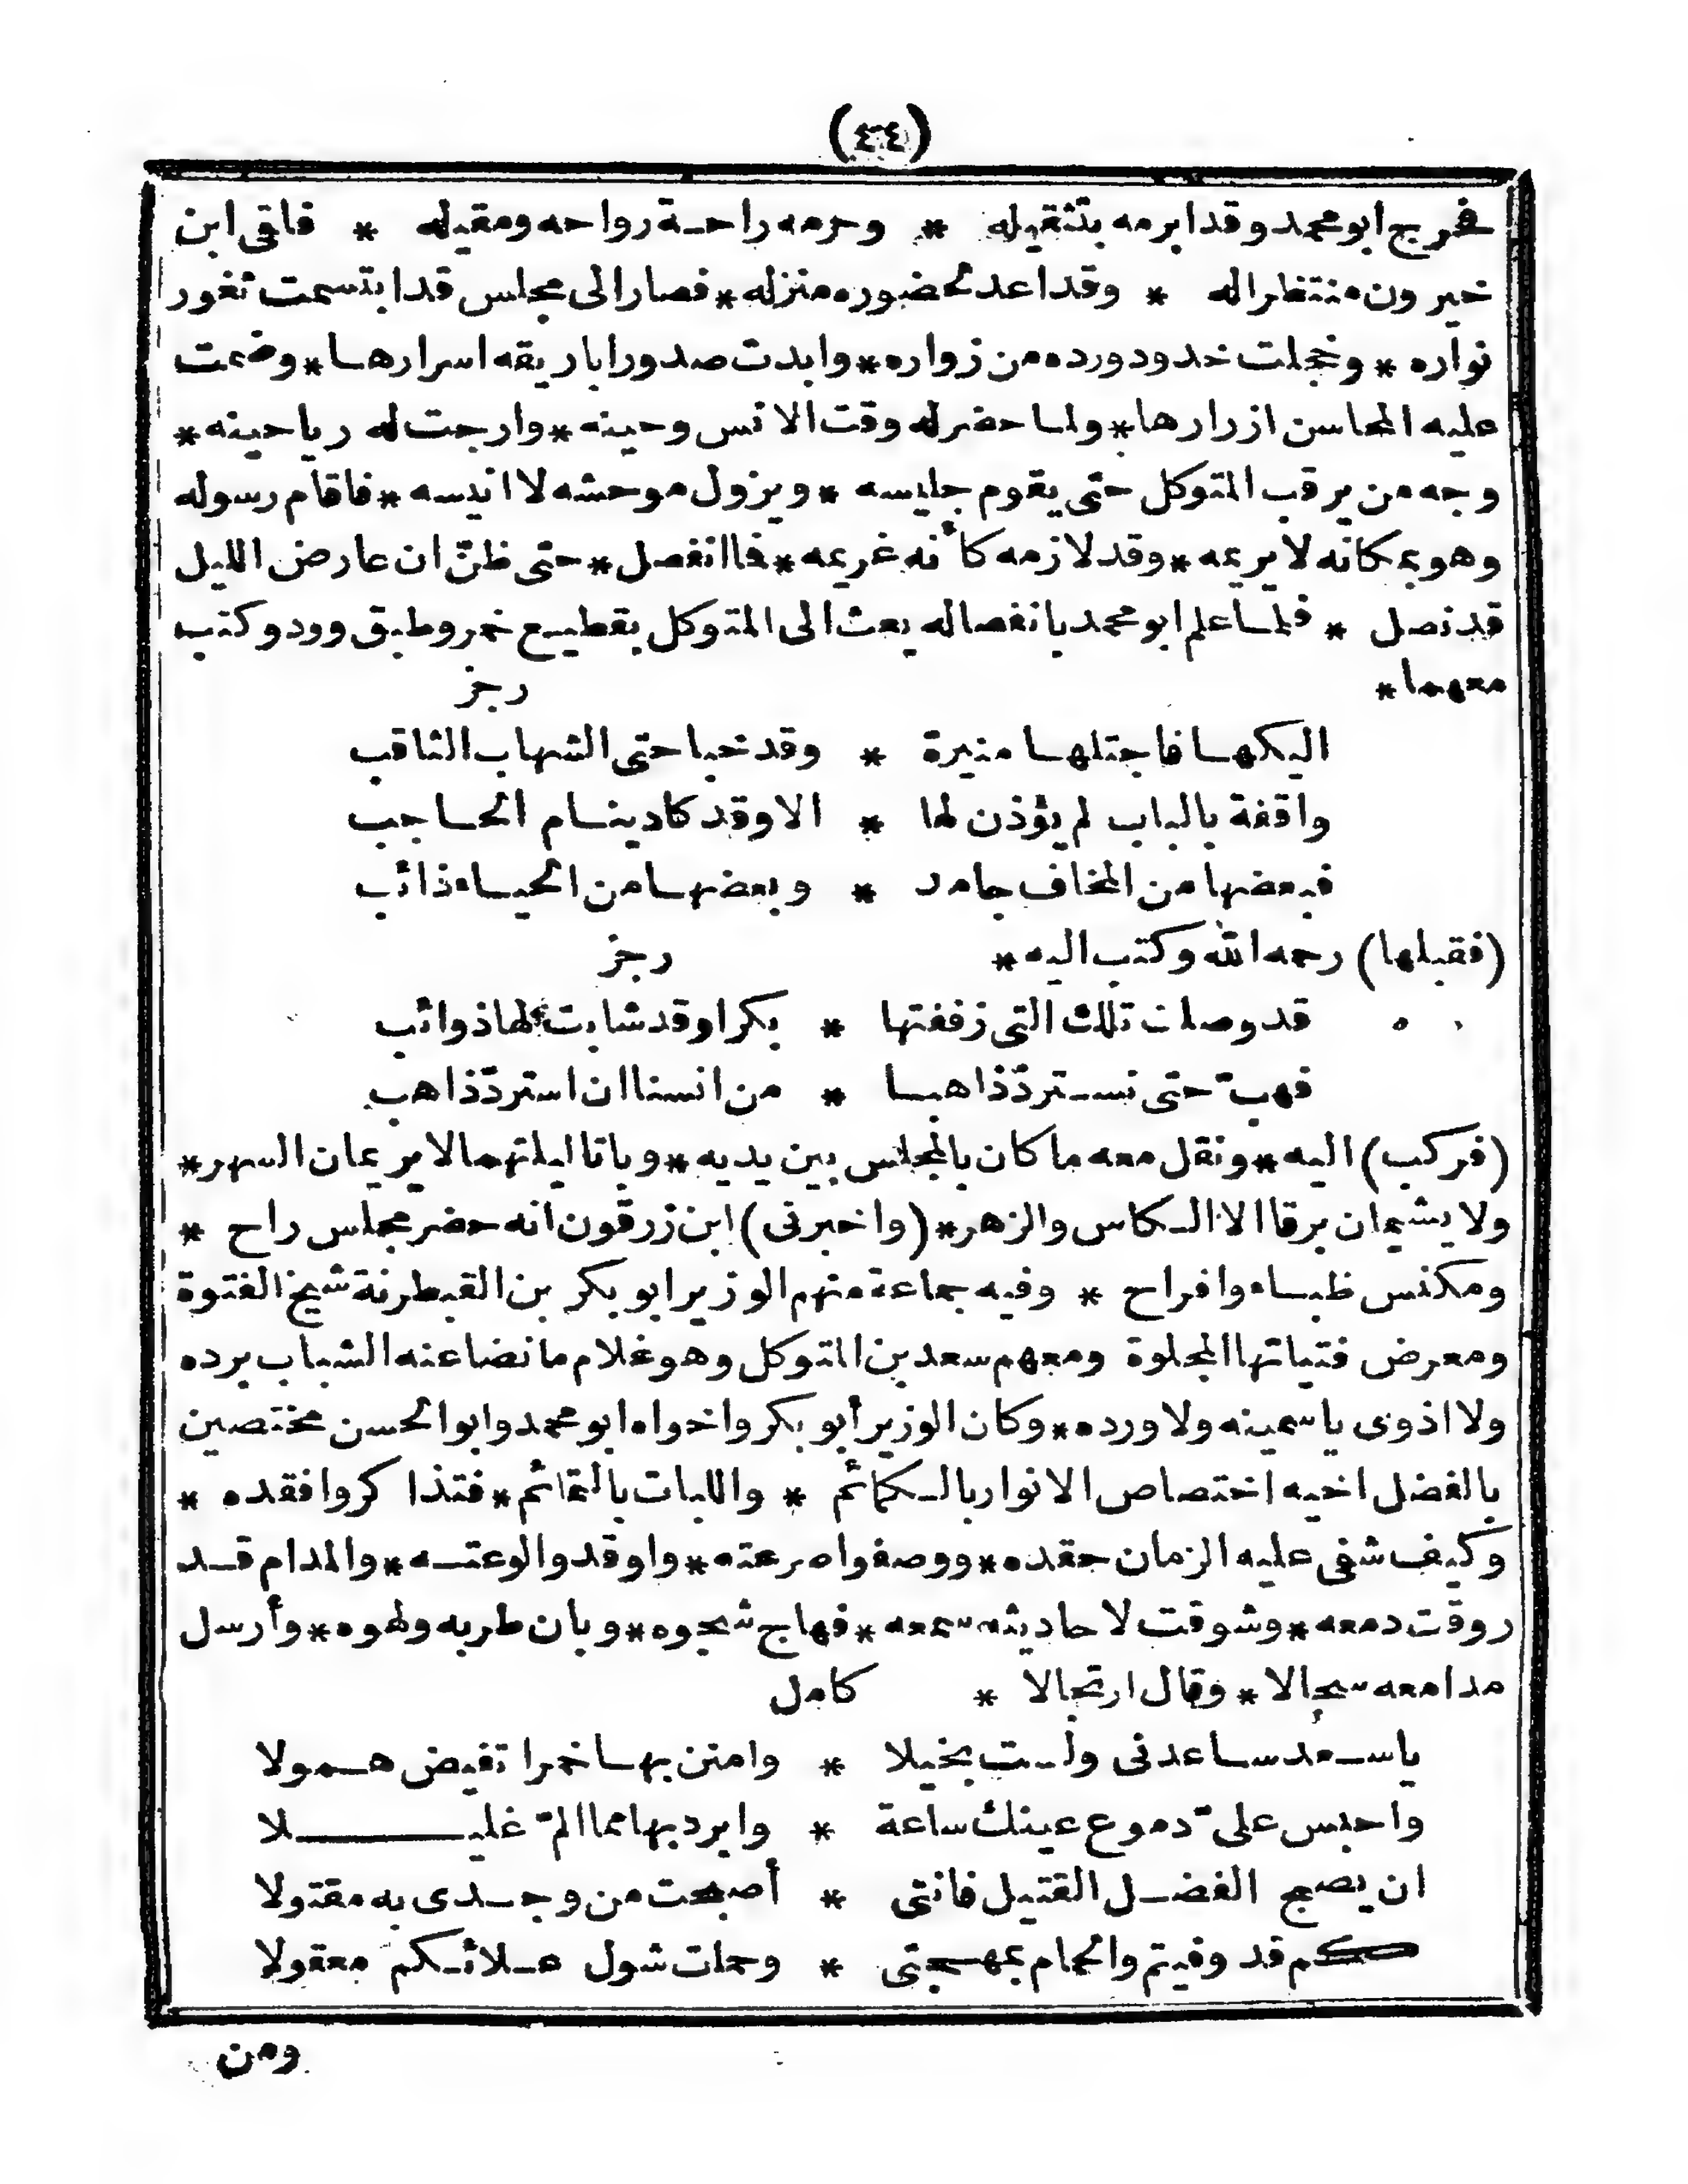 (٤٤)
فخرج ابو محمد وقد ابرمه بتثقيله * وحرمه راحة رواحه ومقيله * فلقى ابن
خيرون منتظرا له * وقد اعد لحضوره منزله * فصار الى مجلس قد ابتسمت ثغور
نواره * وخجلت خدود ورده من زواره * وابدت صدور اباريقه اسرارها * وضمت
عليه المحاسن ازرارها * ولما حضر له وقت الانس وحينه * وارجت له رياحينه *
وجه من يرقب المتوكل حتى يقوم جليسه * ويزول موحشه لا انيسه * فاقام رسوله
وهو بمكانه لا يريمه * وقد لازمه كأنه غريمه * فما انفصل * حتى ظنّ ان عارض الليل
قد نصل * فلما علم ابو محمد بانفصاله بعث الى المتوكل بقطيع خمر وطبق وود وكتب
معهما * رجز
اليكها فاجتلها منيرة * وقد خبا حتى الشهاب الثاقب
واقفة بالباب لم يؤذن لها * الا وقد كاد ينام الحاجب
فبعضها من المخاف جامد * وبعضها من الحياء ذائب
(فقبلها) رحمه الله وكتب اليه * رجز
قد وصلت تلك التى زففتها * بكرا وقد شابت لها ذوائب
فهبّ حتى نستردّ ذاهبا * من انسنا ان استردّ ذاهب
(فركب) اليه * ونقل معه ما كان بالمجلس بين يديه * وباتا ليلتهما لا يريمان السهر *
ولا يشيمان برقا الا الكاس والزهر * (واخبرنى) ابن زرقون انه حضر مجلس راح *
ومكنس ظباء وافراح * وفيه جماعة منهم الوزير ابو بكر بن القبطرنة شيخ الفتوة
ومعرض فتياتها المجلوة ومعهم سعد بن المتوكل وهو غلام ما نضا عنه الشباب برده
ولا اذوى ياسمينه ولا ورده * وكان الوزير أبو بكر واخواه ابو محمد وابو الحسن مختصين
بالفضل اخيه اختصاص الانوار بالكمائم * واللبات بالتمائم * فتذاكروا فقده *
وكيف شفى عليه الزمان حقده * ووصفوا صرعته * واوقدوا لوعته * والمدام قد
روقت دمعه * وشوقت لاحاديثه سمعه * فهاج شجوه * وبان طربه ولهوه * وأرسل
مدامعه سجالا * وقال ارتجالا * كامل
يا سعد ساعدنى ولست بخيلا * وامنن بها خمرا تفيض همولا
واحبس علىّ دموع عينك ساعة * وابرد بها مما المّ غليلا
ان يصبح الفضل القتيل فاننى * أصبحت من وجدى به مقتولا
كم قد وفيتم والحمام بمهجتى * وحملت شول علائكم معقولا
ومن